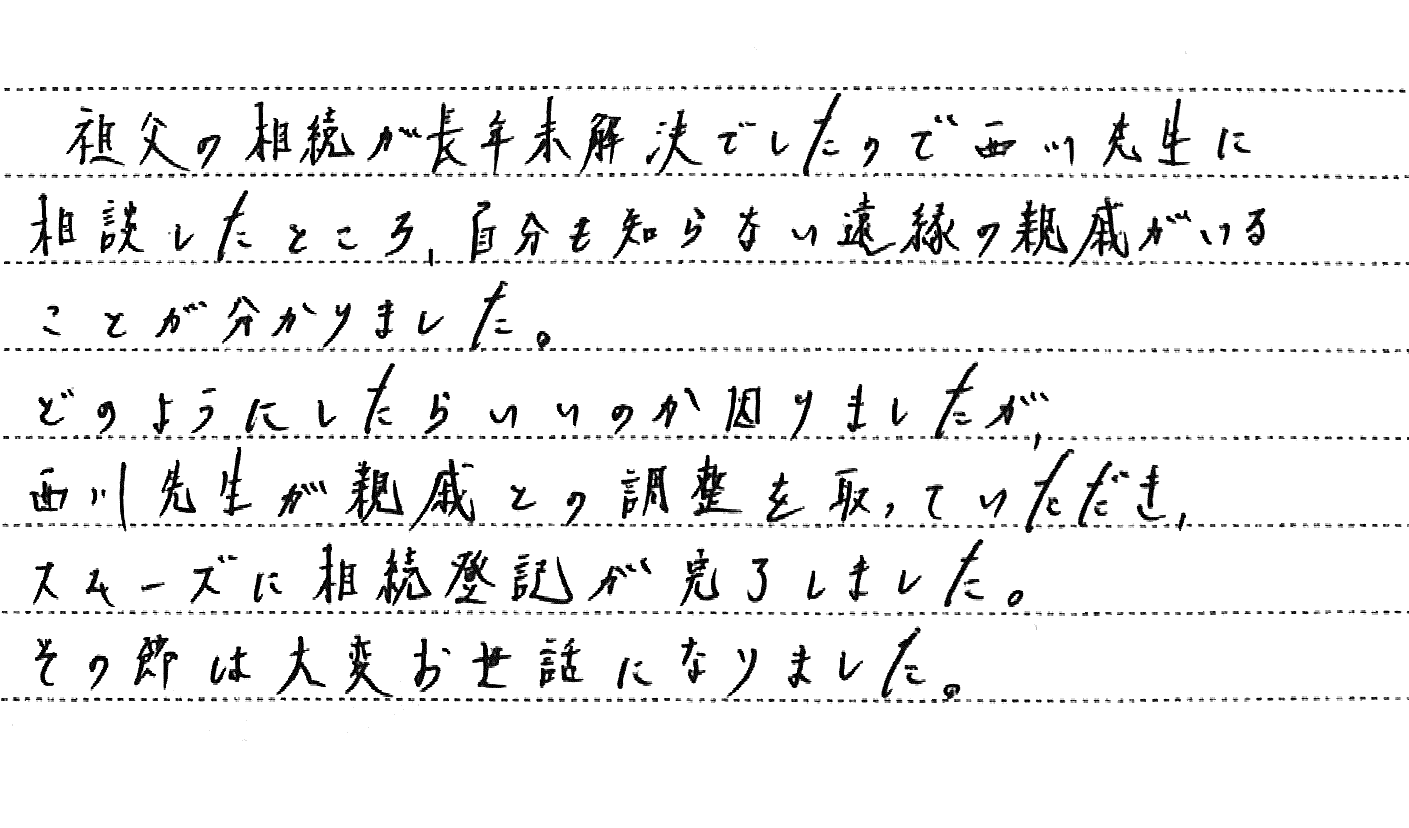 祖父の相続が長年未解決でしたので西川先生に
相談したところ、自分も知らない遠縁の親戚がいる
ことが分かりました。
どのようにしたらいいのか困りましたが、
西川先生が親戚との調整を取っていただき、
スムーズに相続登記が完了しました。
その節は大変お世話になりました。